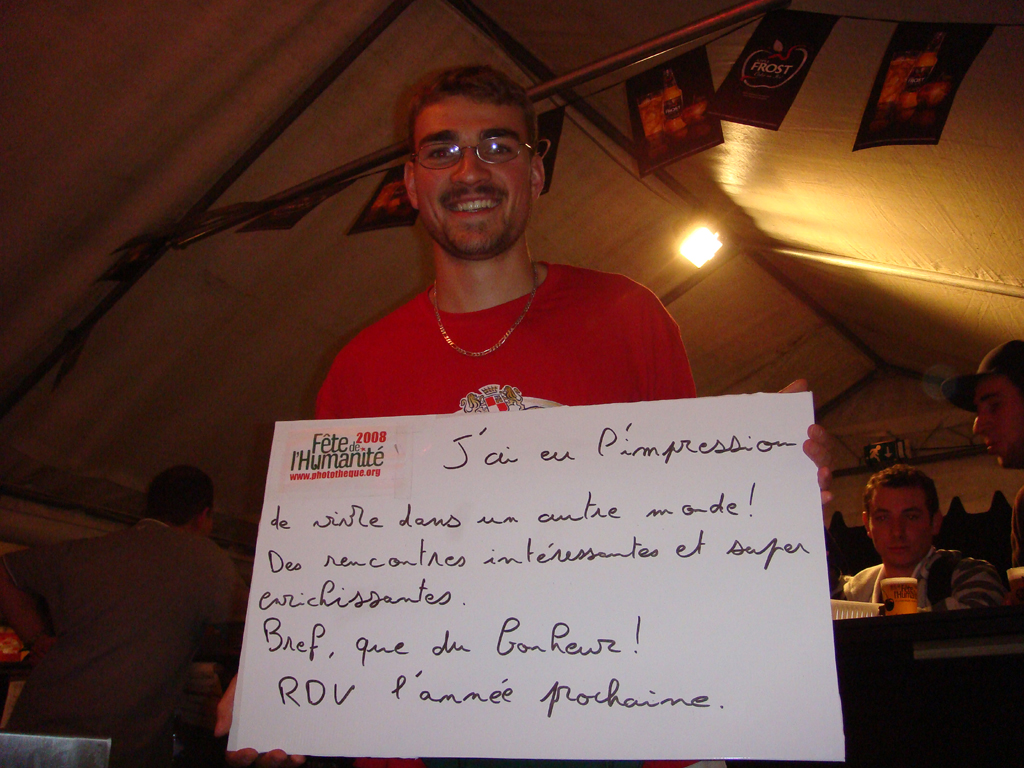 FROST
Fête de 2008
l'Humanité
www.phototheque.org
J'ai eu l'impression
de vivre dans un autre monde!
Des rencontres intéressantes et super
enrichissantes.
Bref, que du bonheur!
RDV l'année prochaine.